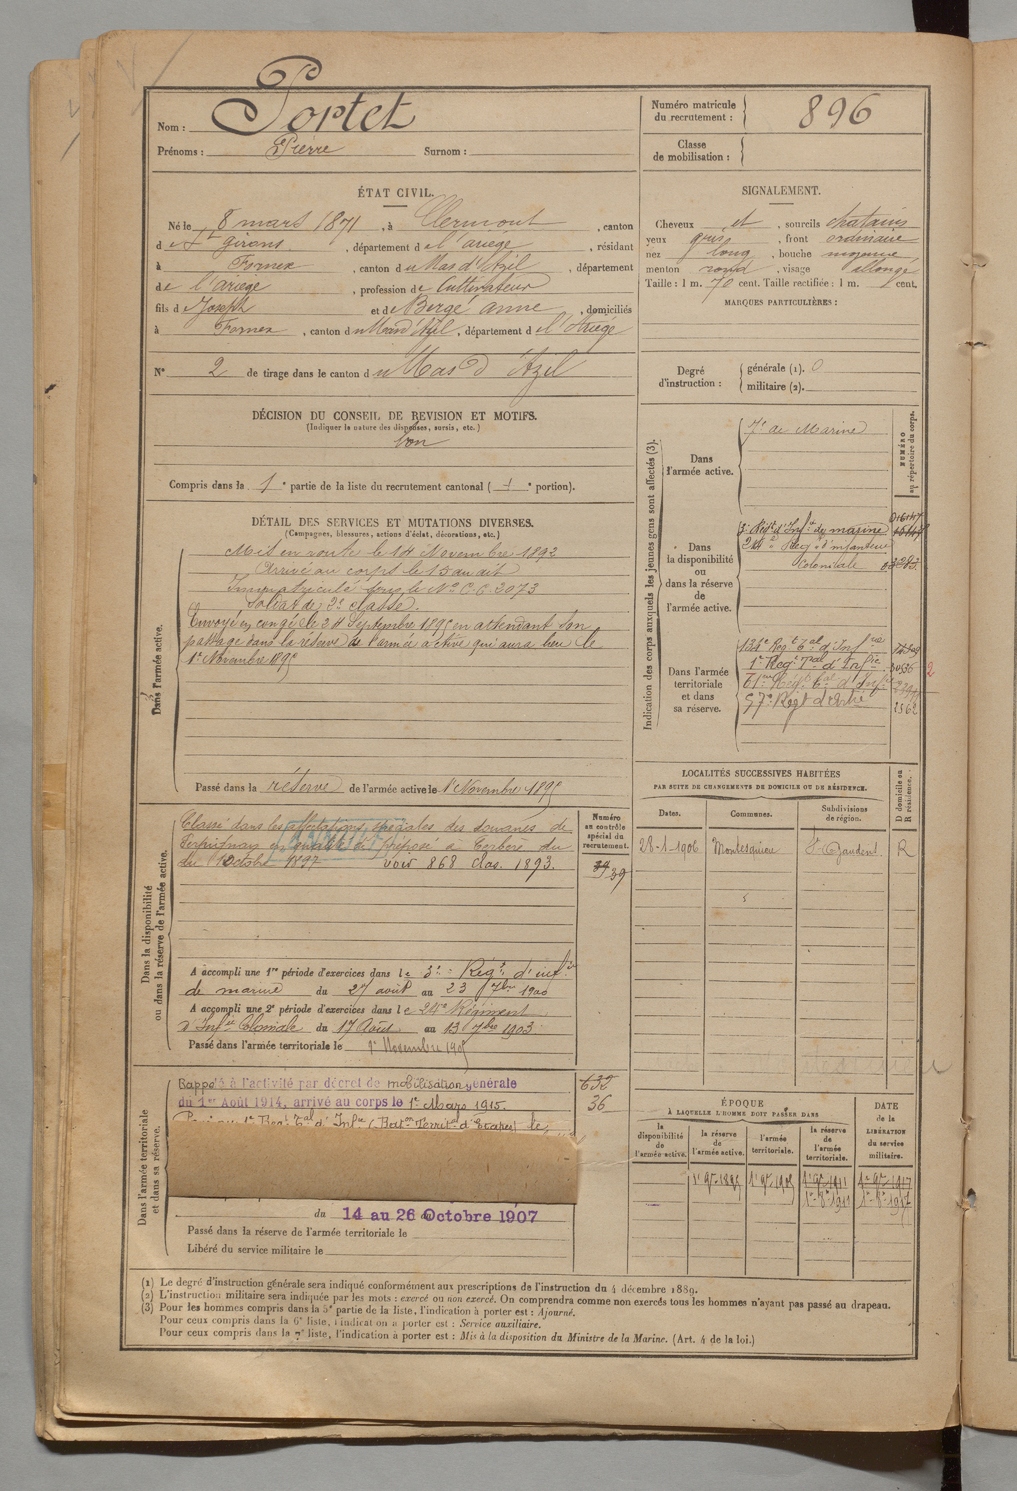 Nom : Portet
Prénoms : Pierre Surnom :
Numéro matricule du recrutement : 896
Classe de mobilisation :
ÉTAT CIVIL.
Né le 8 mars 1871, à Clermont, canton
d e St girons, département d e l'ariège, résidant
à Fornex, canton d u Mas d'Azil, département
d e l'ariège, profession de Cultivateur
fils d e Joseph et d e Bergé anne, domiciliés
à Fornex, canton d u Mas d'Azil, département d e l'Ariège
N° 2 de tirage dans le canton d u Mas d'Azil
SIGNALEMENT.
Cheveux et, sourcils chatains
yeux gris, front ordinaire
nez long, bouche moyenne,
menton rond, visage allongé
Taille : 1 m. 70 cent. Taille rectifiée : 1 m. cent.
MARQUES PARTICULIÈRES :
Degré d'instruction : générale (1). 0
militaire (2).
DÉCISION DU CONSEIL DE REVISION ET MOTIFS.
(Indiquer la nature des dispenses, sursis, etc.)
bon
Compris dans la 1e partie de la liste du recrutement cantonal ( e portion).
DÉTAIL DES SERVICES ET MUTATIONS DIVERSES.
(Campagnes, blessures, actions d'éclat, décorations, etc.)
Dans l'armée active.
Mis en route le 14 Novembre 1892
Arrivé au corps le 15 au dit
Immatriculé sous le No C.C. 3073
Soldat de 2e classe.
Envoyé en congé le 24 Septembre 1895 en attendant son
passage dans la réserve de l'armée active qui aura lieu le
1er Novembre 1895
Passé dans la réserve de l'armée active le 1er Novembre 1895
Indication des corps auxquels les jeunes gens sont affectés (3).
NUMÉRO au répertoire du corps.
Dans l'armée active.
7e de Marine
Dans la disponibilité ou dans la réserve de l'armée active.
3e Régt d'Infie de marine
24e Reg. d'infanterie
Coloniale
Dans l'armée territoriale et dans sa réserve.
121e Regt Tal d'Infrie
1er Regt Tal d'Infie 36 2
Régt Tal d'Infie
57e Régt d'Artie 2562
LOCALITÉS SUCCESSIVES HABITÉES
PAR SUITE DE CHANGEMENTS DE DOMICILE OU DE RÉSIDENCE.
Dates. Communes. Subdivisions de région. D domicile ou R résidence.
28-1-1906 Montesquieu St Gaudens. R
Dans la disponibilité ou dans la réserve de l'armée active.
Numéro au contrôle spécial du recrutement.
Classé dans les affectations spéciales des douanes de
Perpignan en qualité de préposé à Cerbère du
1er Octobre 1897 voir 868 clas. 1893.
34 39
A accompli une 1re période d'exercices dans l e 3e Régt d'infie
de marine du 27 août au 23 7bre 1900
A accompli une 2e période d'exercices dans l e 24e Régiment
d'Infie Coloniale du 17 Août au 13 7bre 1903
Passé dans l'armée territoriale le 1er Novembre 1905
Dans l'armée territoriale et dans sa réserve.
Rappelé à l'activité par décret de mobilisation générale 632
du 1er Août 1914, arrivé au corps le 1er Mars 1915. 36
1er Regt Tal d'Infie (Baton Territal d'Etapes) le
du 14 au 26 Octobre 1907
Passé dans la réserve de l'armée territoriale le
Libéré du service militaire le
ÉPOQUE
À LAQUELLE L'HOMME DOIT PASSER DANS
la disponibilité de l'armée active. la réserve de l'armée active. l'armée territoriale. la réserve de l'armée territoriale. DATE de la LIBÉRATION du service militaire.
1r 9bre 1895 1r 9bre 1905 1r 9bre 1911 1r 9bre 1917
(1) Le degré d'instruction générale sera indiqué conformément aux prescriptions de l'instruction du 4 décembre 1889.
(2) L'instruction militaire sera indiquée par les mots : exercé ou non exercé. On comprendra comme non exercés tous les hommes n'ayant pas passé au drapeau.
(3) Pour les hommes compris dans la 5e partie de la liste, l'indication à porter est : Ajourné.
Pour ceux compris dans la 6e liste, l'indication à porter est : Service auxiliaire.
Pour ceux compris dans la 7e liste, l'indication à porter est : Mis à la disposition du Ministre de la Marine. (Art. 4 de la loi.)